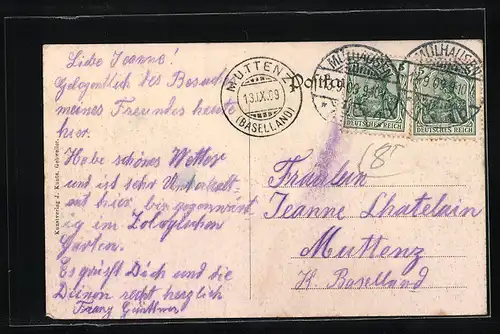 Liebe Jeanne!
Gelegentlich des Besuchs
meines Freundes heute
hier.
Habe schönes Wetter
und ist sehr
hier bin gegenwärt
ig im Zoologischen
Garten.
Es grüsst Dich und die
Deinen recht herzlich
Franz
Kunstverlag J. Kuntz, Gebweiler.
MUTTENZ
13.IX.09
(BASELLAND)
Postkarte
MÜLHAUSEN
9-10
DEUTSCHES REICH
MÜLHAUSEN
9-10
DEUTSCHES REICH
Fräulein
Jeanne Chatelain
Muttenz
K. Baselland